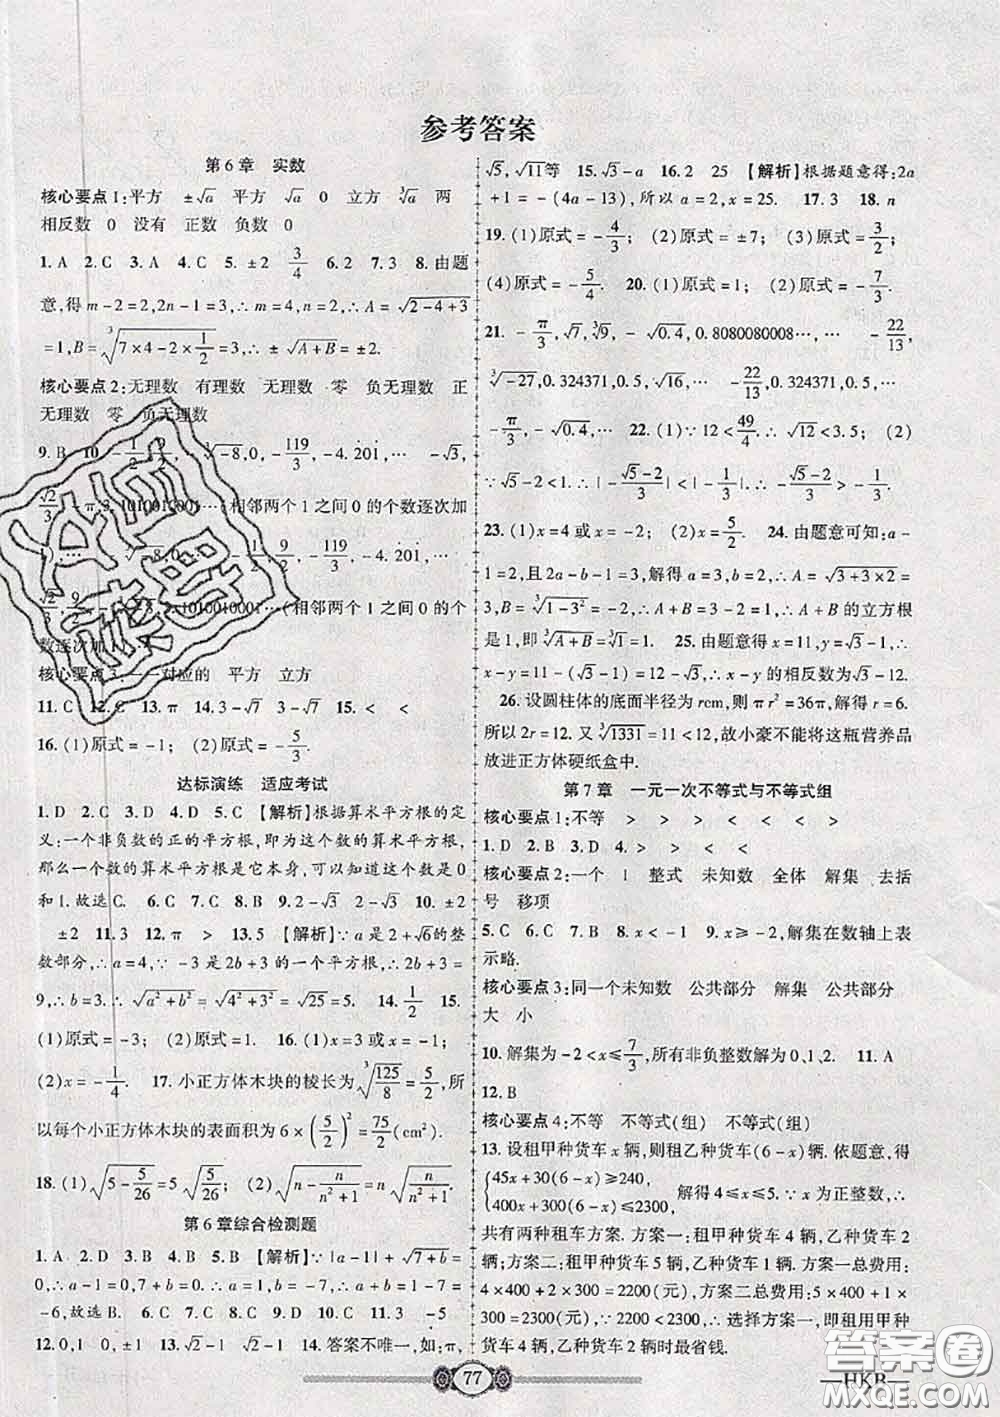 参考答案
第6章 实数
核心要点1:平方 ±√a 平方 √a 0 立方 ∛a 两
相反数 0 没有 正数 负数 0
1.A 2.C 3.A 4.C 5.±2 3/4 6.2 7.3 8.由题
意,得m-2=2,2n-1=3,∴m=4,n=2,∴A=√(2-4+3)
=1,B=∛(7×4-2×1/2)=3,∴±√(A+B)=±2.
核心要点2:无理数 有理数 无理数 零 负无理数 正
无理数 零 负无理数
9.B 10.-1/2,9/2,∛-8,0,-119/3,-4.201,… -√3,
√2/3,-π,3.1010010001…(相邻两个1之间0的个数逐次加
∛-8,0,-1/2,9/2,-119/3,-4.201,…
√2/3,1010010001…(相邻两个1之间0的个
数逐次加1),…
核心要点3:一一对应的 平方 立方
11.C 12.C 13.π 14.3-√3 3-√3 15.< <
16.(1)原式=-1; (2)原式=-5/3.
达标演练 适应考试
1.D 2.C 3.D 4.D 5.C 【解析】根据算术平方根的定
义:一个非负数的正的平方根,即为这个数的算术平方根,
那么一个数的算术平方根是它本身,可以知道这个数是0
和1.故选C. 6.C 7.C 8.B 9.2-√3 2-√3 10.±2
±2 11.3 12.π > 13.5 【解析】∵a是2+√6的整
数部分,∴a=4,∵-3是2b+3的一个平方根,∴2b+3=
9,∴b=3.∴√(a²+b²)=√(4²+3²)=√25=5. 14.1/2 15.
(1)原式=-3; (2)原式=5. 16.(1)x=3或x=-1;
(2)x=-1/4. 17.小正方体木块的棱长为∛(125/8)=5/2,所
以每个小正方体木块的表面积为6×(5/2)²=75/2(cm²).
18.(1)√(5-5/26)=5√(5/26) (2)√(n-n/(n²+1))=n√(n/(n²+1))
第6章综合检测题
1.A 2.D 3.C 4.B 5.B 【解析】∵|a-1|+√(7+b)=
0,∴a-1=0,7+b=0,∴a=1,b=-7,∴a+b=1-7=
-6,故选B. 6.C 7.D 8.B 9.D 10.C 11.3 -5
12.0,1 0,±1 13.√2-1 √2-1 14.答案不唯一,如:π,
√5,√11等 15.√3-a 16.2 25 【解析】根据题意得:2a
+1=-(4a-13),所以a=2,x=25. 17.3 18.n
19.(1)原式=-4/3; (2)原式=±7; (3)原式=3/2;
(4)原式=-5/4. 20.(1)原式=1; (2)原式=-7/3.
21.-π/3,√7,∛9,-√0.4,0.8080080008…,… -22/13,
∛-27,0.324371,0.5,√16,… -22/13,0.324371,0.5,…
-π/3,-√0.4,… 22.(1)∵12<49/4.∴√12<3.5; (2)
∵√5-2<1.∴|-(√5-2)/3|<|-1/3|,∴-(√5-2)/3>-1/3.
23.(1)x=4或x=-2; (2)x=5/2. 24.由题意可知:a-
1=2,且2a-b-1=3,解得a=3,b=2,∴A=√(3+3×2)=
3,B=∛(1-3²)=-2,∴A+B=3-2=1,∴A+B的立方根
是1,即∛(A+B)=∛1=1. 25.由题意得x=11,y=√3-1,∴
x-y=11-(√3-1)=12-√3,∴x-y的相反数为√3-12.
26.设圆柱体的底面半径为rcm,则πr²=36π,解得r=6.
所以2r=12.又∛1331=11<12,故小豪不能将这瓶营养品
放进正方体硬纸盒中.
第7章 一元一次不等式与不等式组
核心要点1:不等 > > > < < < >
1.D 2.B 3.D 4.> > < <
核心要点2:一个 1 整式 未知数 全体 解集 去括
号 移项
5.C 6.C 7.B 8.x<-1 9.x≥-2,解集在数轴上表
示略.
核心要点3:同一个未知数 公共部分 解集 公共部分
大 小
10.解集为-2<x≤7/3,所有非负整数解为0、1、2. 11.A
12.B
核心要点4:不等 不等式(组) 不等式(组)
13.设租甲种货车x辆,则租乙种货车(6-x)辆.依题意,得
{45x+30(6-x)≥240,
400x+300(6-x)≤2300} 解得4≤x≤5.∵x为正整数,∴
共有两种租车方案.方案一:租甲种货车4辆,乙种货车2
辆;方案二:租甲种货车5辆,乙种货车1辆,方案一总费用:
4×400+2×300=2200(元),方案二总费用:5×400+1×
300=2300(元),∵2200<2300,∴选择方案一,即租用甲种
货车4辆,乙种货车2辆时最省钱.
77
HKB
答案圈